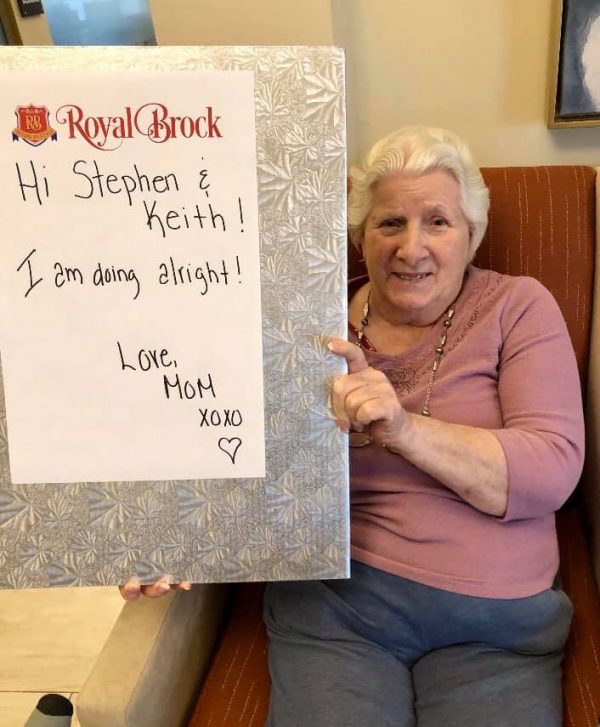 RB
Royal Brock
Hi Stephen &
Keith!
I am doing alright!
Love,
MOM
XOXO